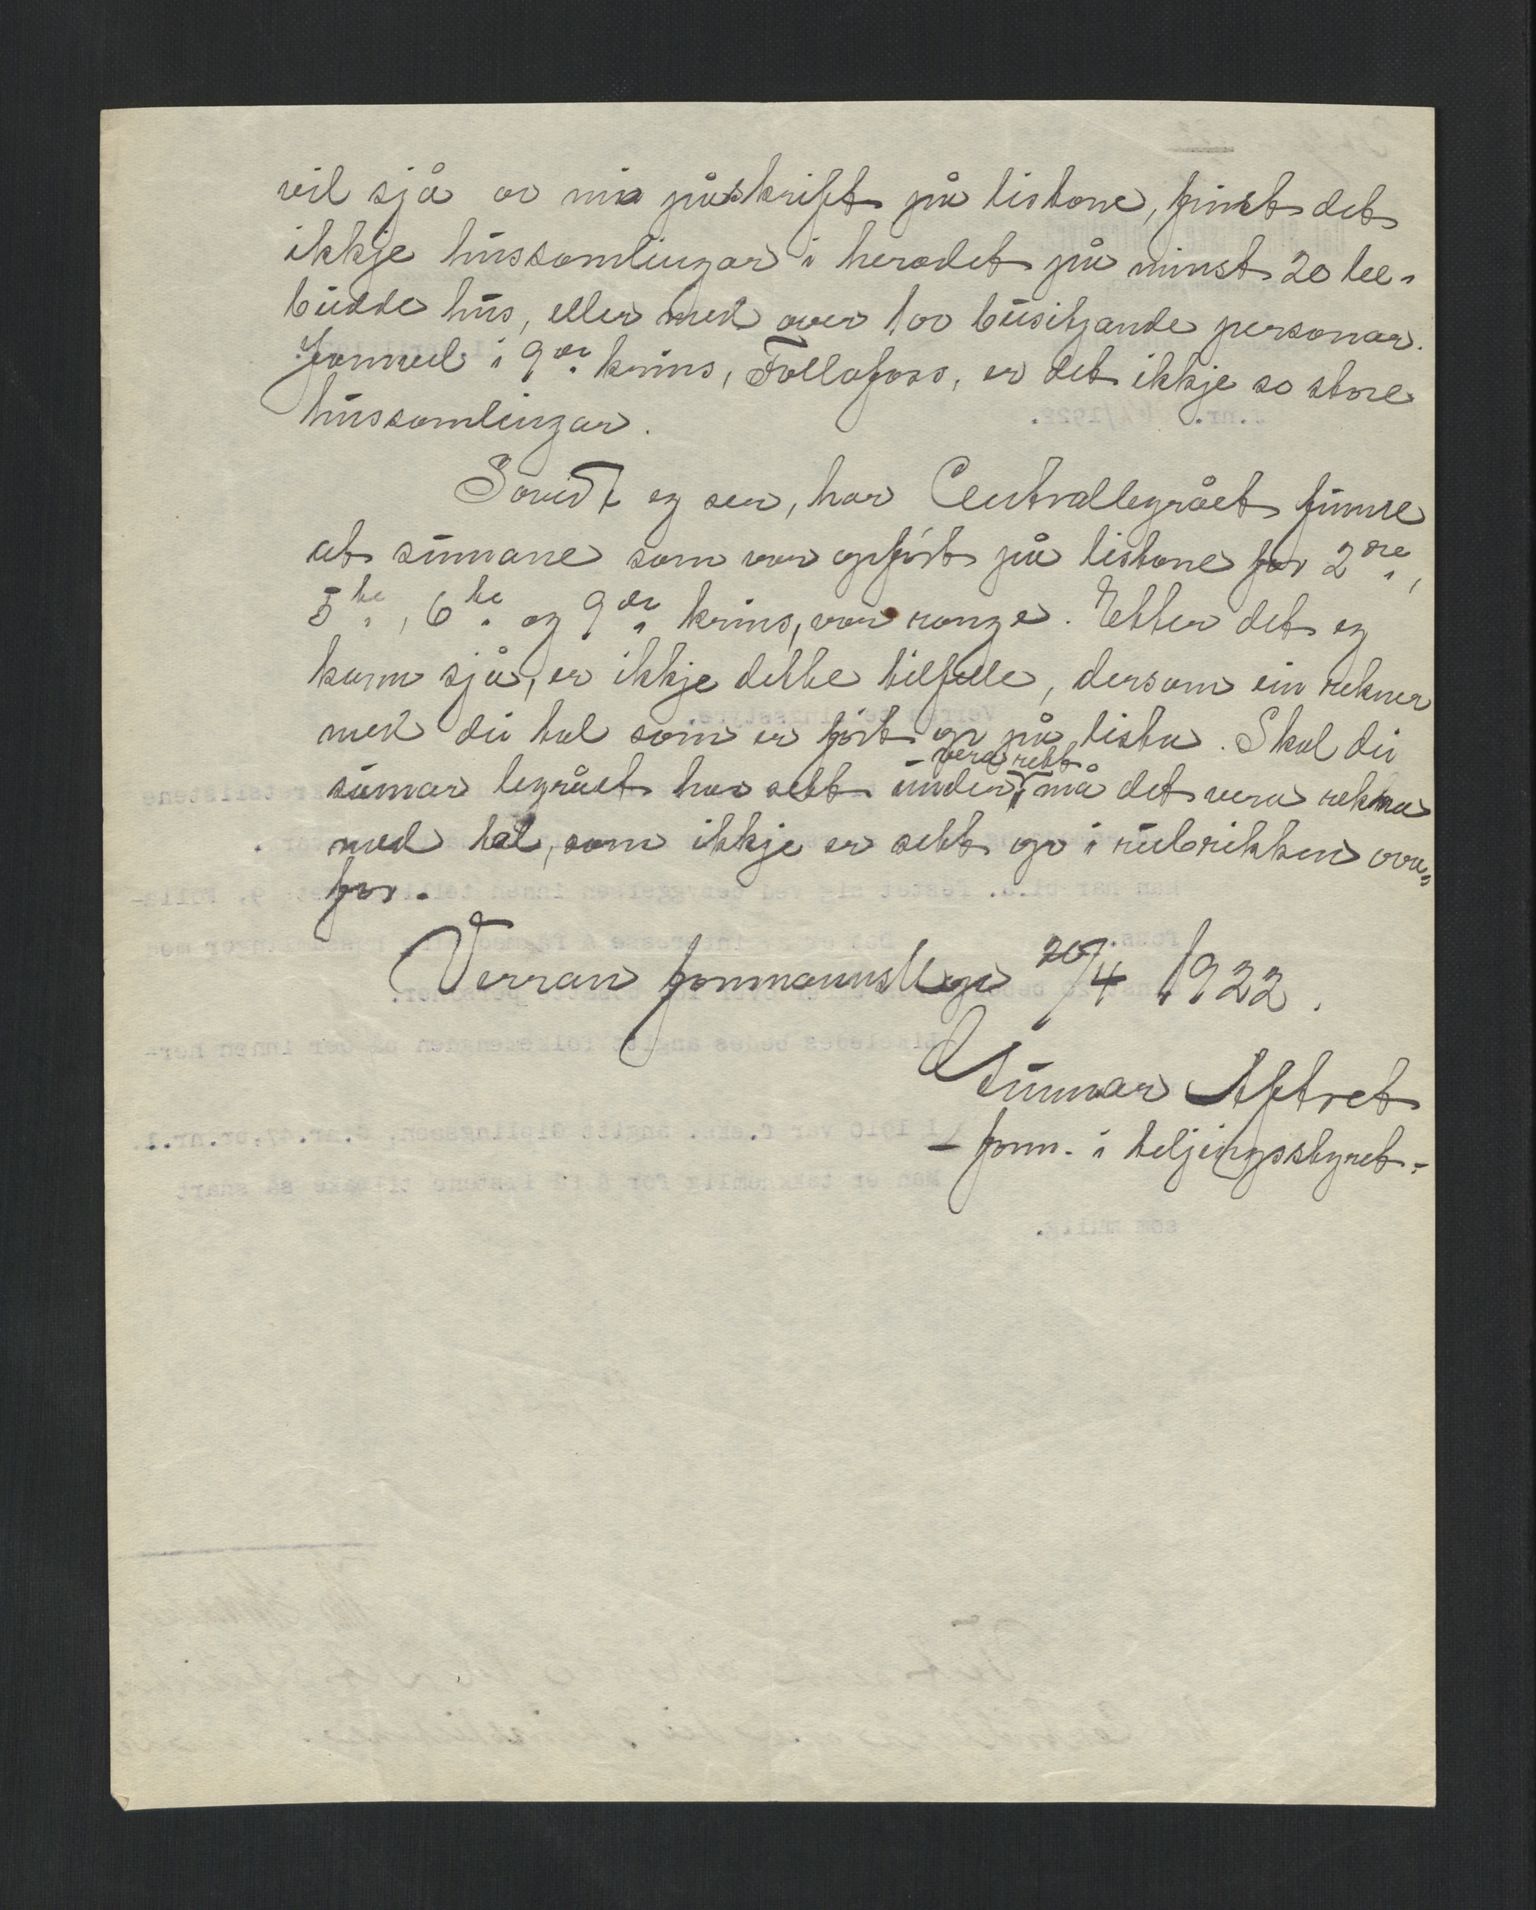 vil sjå av mia påskrift på listone, finst det
ikkje hussamlingar i heradet på minst 20 be-
budde hus, eller med over 100 busitjande personar.
Jamvel i 9de krins, Follafoss, er det ikkje so store
hussamlingar.
Sovidt eg ser, har Centrallegrået funne
at sumane som var opført på listone for 2dre,
5te, 6te og 9de krins, var range. Etter det eg
kann sjå, er ikkje dette tilfelle, dersom ein reknar
med dei tal som er ført op på lista. Skal dei
vera rett
sumar legrået har sett under, må det vera rekna
med tal, som ikkje er sett op i rubrikken ova-
for.
Verran formannskap 20/4 1922.
Gunnar Aftret
- form. i teljingsstyret -